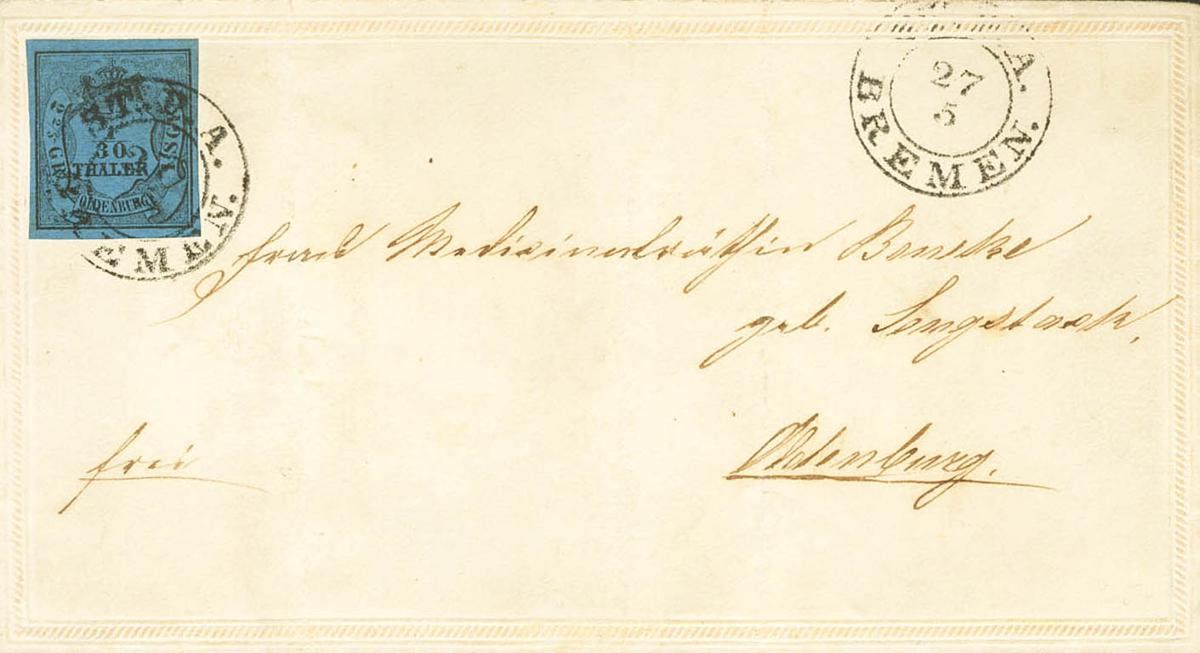 ST. P. A.
BREMEN.
27
5
A.
BREMEN.
1
30
THALER
OLDENBURG
Frau Medicinalräthin Beneke
geb. Sengstack,
frei
Oldenburg.